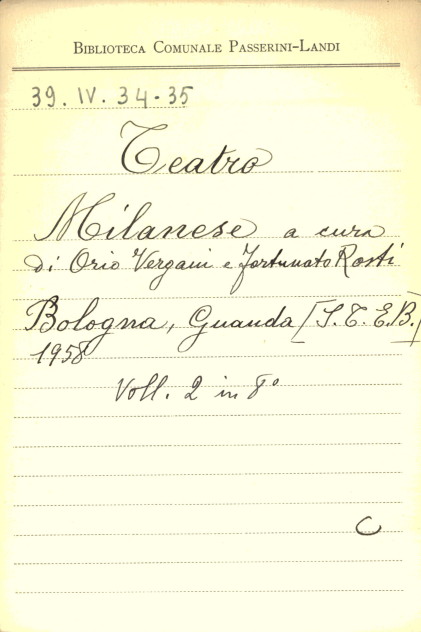 BIBLIOTECA COMUNALE PASSERINI-LANDI
39. IV. 34-35
Teatro
Milanese a cura
di Orio Vergani e Fortunato Rosti
Bologna, Guanda [S.T.E.B.]
1958
Voll. 2 in 8°
C